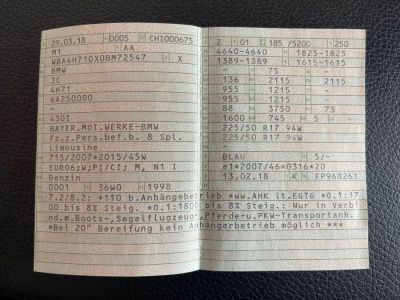 29.03.18 0005 CHI000675
M1 AA
WBA4H71OX0BM72547 X
BMW
3C
4H71
6A250000
-
430I
BAYER.MOT.WERKE-BMW
Fz.z.Pers.bef.b. 8 Spl.
Limousine
715/2007*2015/45W
EURO6;W;PI/CI; M, N1 I
Benzin
0001 36W0 1998
2 01 185 /5200 250
4640-4640 1825-1825
1389-1389 1615-1615
- 75 -
136 2115 2115
955 1215 -
955 1215 -
88 3750 73
1600 745 5 -
225/50 R17 94W
225/50 R17 94W
-
BLAU 5/-
e1*2007/46*0316*20
13.02.18 K FP968261
7.2/8.2: +110 b.Anhängerbetrieb *ww.AHK lt.EGTG *0.1:17
00 bis 8% Steig. *0.1:1800 bis 8% Steig.: Nur in Verbi
nd.m.Boots-,Segelflugzeug-,Pferde-u.PKW-Transportanh.
*Bei 20" Bereifung kein Anhängerbetrieb möglich ***